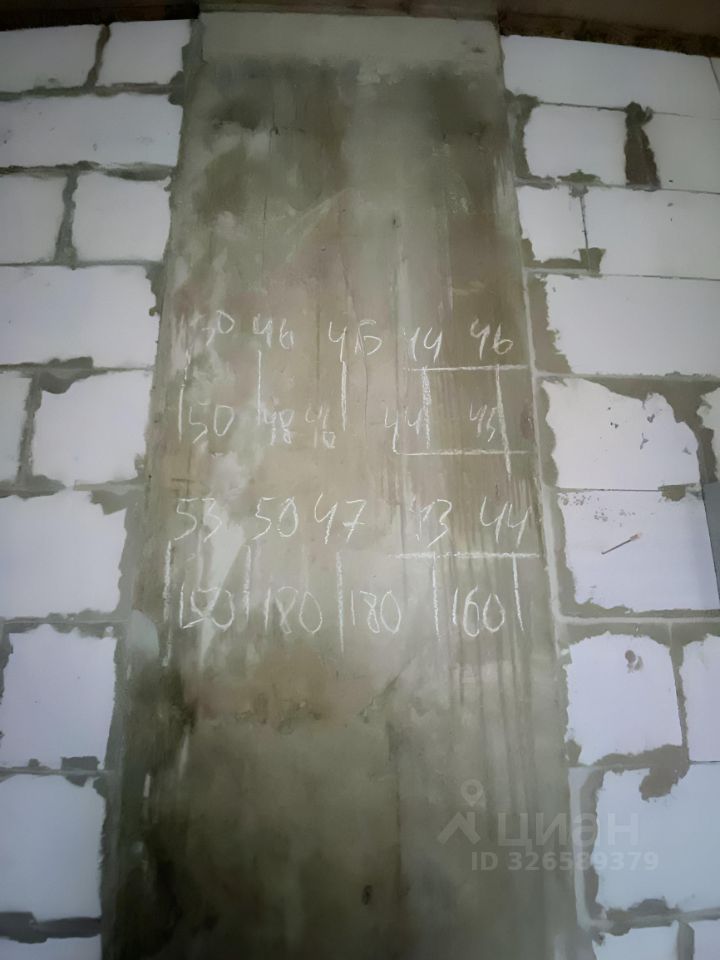 50 46 46 44 46
50 48 46 44 45
53 50 47 43 44
150 180 180 160
циан
ID 326589379